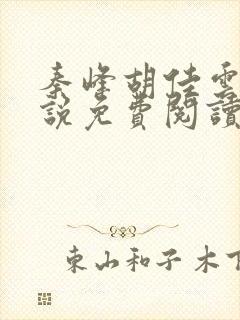 秦峰胡佳雲
說免費閱讀
東山和子木下